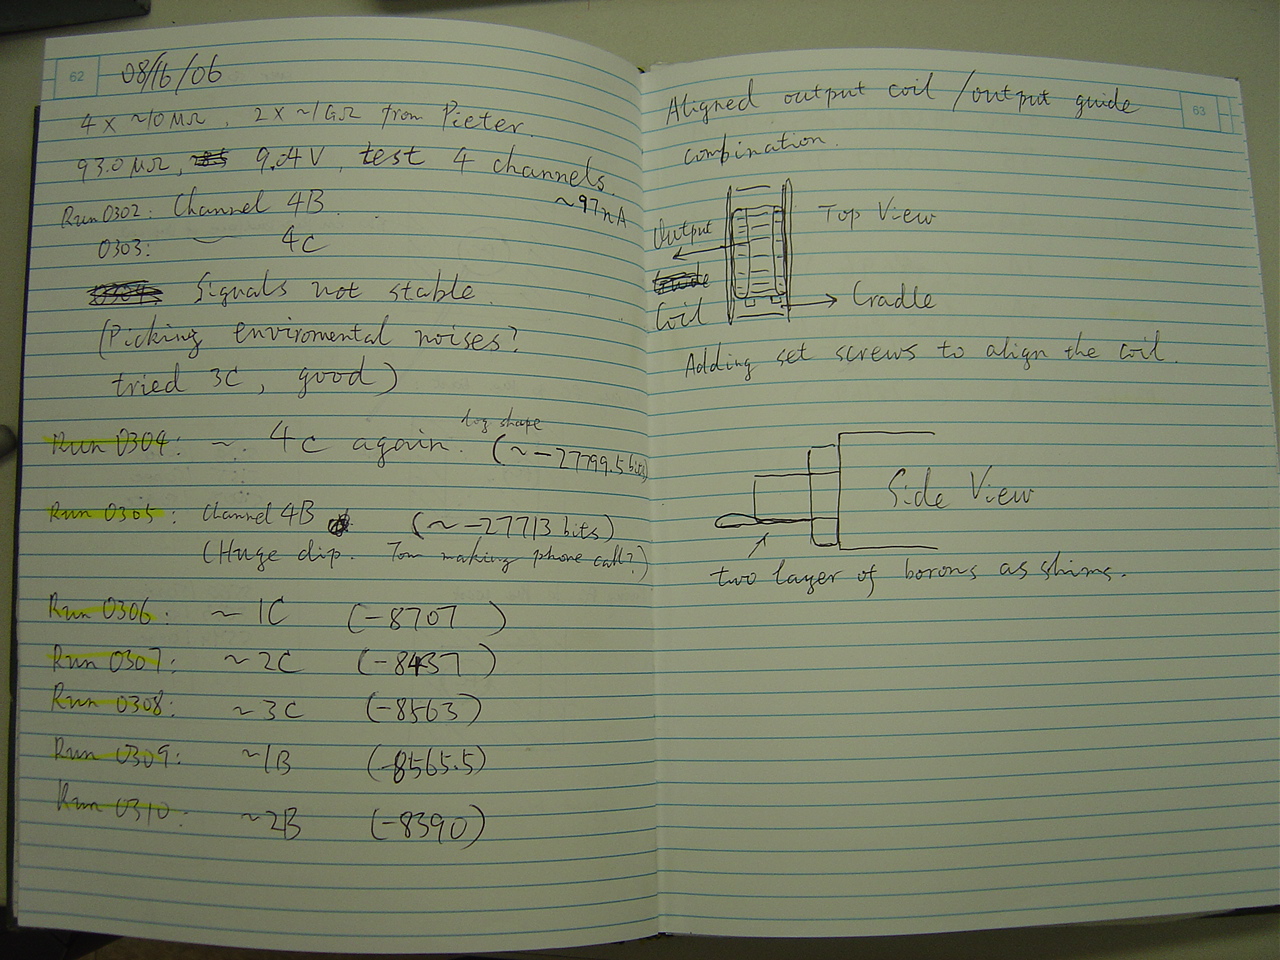 62
08/16/06
4 x ~10 MΩ, 2 x ~1GΩ from Pieter.
93.0 MΩ, 9.04V, test 4 channels.
~97nA
Run 0302: Channel 4B.
0303: ~ 4C
Signals not stable.
(Picking enviromental noises?
tried 3C, good)
Run 0304: ~ 4C again. (~-27799.5 bits)
shape
Run 0305: Channel 4B (~-27713 bits)
(Huge dip. Tom making phone call?)
Run 0306: ~ 1C (-8707)
Run 0307: ~2C (-8437)
Run 0308: ~3C (-8563)
Run 0309: ~1B (-8565.5)
Run 0310: ~2B (-8390)
63
Aligned output coil /output guide
combination.
Output
Coil
Top View
Cradle
Adding set screws to align the coil.
Side View
two layer of borons as shims.